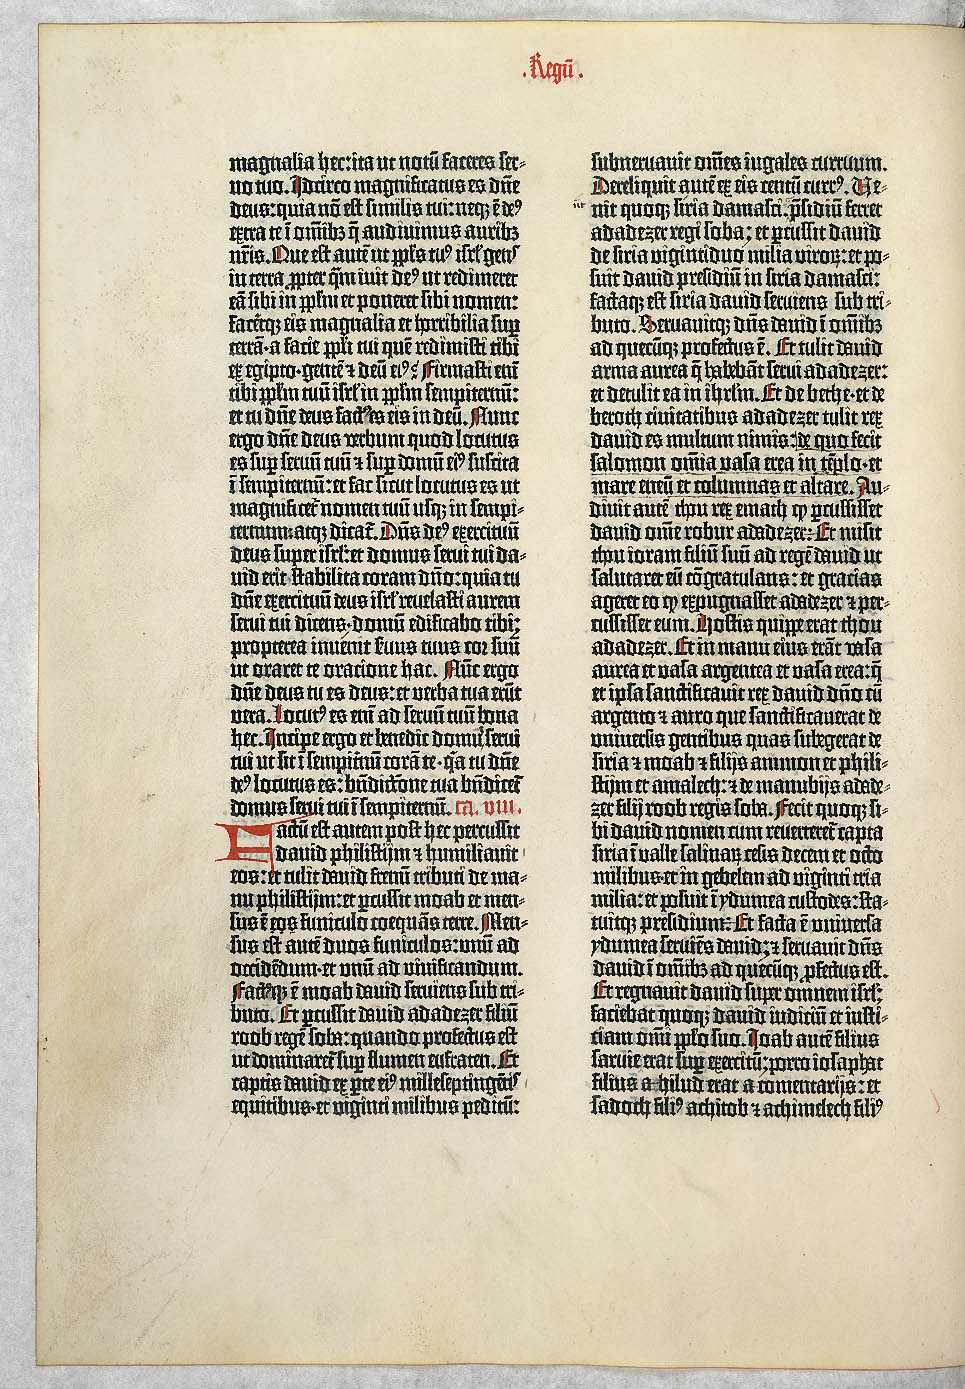 .Regū.
magnalia hec: ita ut notū faceres ser⸗
no tuo. Idcirco magnificatus es dñe
deus: quia nō est similis tui: neqꝫ ē deꝰ
extra te ī omībꝫ q̄ audiuimus auribꝫ
nr̄is. Que est autē ut ppl̄s tuꝰ isrl̄ gens
in terra ꝓpter q̄m iuit deꝰ ut redimeret
eā sibi in ppl̄m et poneret sibi nomen:
facētqꝫ eis magnalia et horribilia suꝑ
terrā · a facie ppl̄i tui quē redimisti tibi
ex egipto · gentē ⁊ deū eiꝰ? Firmasti enī
tibi ppl̄m tuū isrl̄ in ppl̄m sempiternū:
et tu dñe deus factꝰ es eis in deū. Nunc
ergo dñe deus verbum quod locutus
es suꝑ seruū tuū ⁊ suꝑ domū eiꝰ suscita
ī sempiternū: et fac sicut locutus es ut
magnificet̄ nomen tuū usqꝫ in sempi⸗
ternum: atqꝫ dicat̄. Dñs deꝰ exercituū
deus super isrl̄: et domus serui tui da⸗
uid erit stabilita coram dño: quia tu
dñe exercituū deus isrl̄ reuelasti aurem
serui tui dicens · domū edificabo tibi:
propterea inuenit seruus tuus cor suū
ut oraret te oracione hac. Nūc ergo
dñe deus tu es deus: et verba tua erūt
vera. Locutꝰ es enī ad seruū tuū bona
hec. Incipe ergo et benedic domui serui
tui ut sit ī sempit̄nū corā te · q̄a tu dñe
deꝰ locutus es: bñdictōne tua bñdicet̄
domus serui tui ī sempiternū. ca. viii.
Factū est autem post hec percussit
dauid philistijm ⁊ humiliauit
eos: et tulit dauid frenū tributi de ma⸗
nu philistijm: et ꝑcussit moab et men⸗
sus ē eos funiculo coequās terre. Men⸗
sus est autē duos funiculos: vnū ad
occidēdum · et vnū ad viuificandum.
Factꝰqꝫ ē moab dauid seruiens sub tri⸗
buto. Et ꝑcussit dauid adadezer filiū
roob regē soba: quando profectus est
ut dominaret̄ suꝑ flumen eufraten. Et
captis dauid ex ꝑte eiꝰ milleseptingētis
equitibus · et viginti milibus peditū:
subneruauit om̄es iugales curruum.
Dereliquit autē ex eis centū currꝰ. Ve⸗
nit quoqꝫ siria damasci: p̄sidiū ferret
adadezer regi soba: et ꝑcussit dauid
de siria vigintiduo milia viroꝝ: et po⸗
suit dauid presidiū in siria damasci:
factaqꝫ est siria dauid seruiens sub tri⸗
buto. Seruauitqꝫ dñs dauid ī om̄ibꝫ
ad quecūqꝫ profectus ē. Et tulit dauid
arma aurea q̄ habebāt serui adadezer:
et detulit ea in ihrl̄m. Et de bethe · et de
beroth ciuitatibus adadezer tulit rex
dauid es multum nimis: de quo fecit
salomon om̄ia vasa erea in tēplo · et
mare eneū et columnas et altare. Au⸗
diuit autē thou rex emath ꝙ ꝑcussisset
dauid om̄e robur adadezer: Et misit
thou ioram filiū suū ad regē dauid ut
salutaret eū cōgratulans: et gracias
ageret eo ꝙ expugnasset adadezer ⁊ per⸗
cussisset eum. Hostis quippe erat thou
adadezer. Et in manu eius erāt vasa
aurea et vasa argentea et vasa erea: q̄
et ipsa sanctificauit rex dauid dño cū
argento ⁊ auro que sanctificauerat de
vniuersis gentibus quas subegerat de
siria ⁊ moab ⁊ filijs ammon et phili⸗
stijm et amalech: ⁊ de manubijs adade⸗
zer filij roob regis soba. Fecit quoqꝫ si⸗
bi dauid nomen cum reuerteret̄ capta
siria ī valle salinaꝝ cesis decem et octo
milibus · et in gebelem ad viginti tria
milia: et posuit ī ydumea custodes: sta⸗
tuitqꝫ presidium: Et facta ē vniuersa
ydumea seruiēs dauid: ⁊ seruauit dñs
dauid ī om̄ibꝫ ad quecūqꝫ ꝓfectus est.
Et regnauit dauid super omnem isrl̄:
faciebat quoqꝫ dauid iudiciū et iusti⸗
ciam om̄i ppl̄o suo. Ioab autē filius
saruie erat suꝑ exercitū: porro iosaphat
filius ahilud erat a comentarijs: et
sadoch filiꝰ achitob ⁊ achimelech filiꝰ